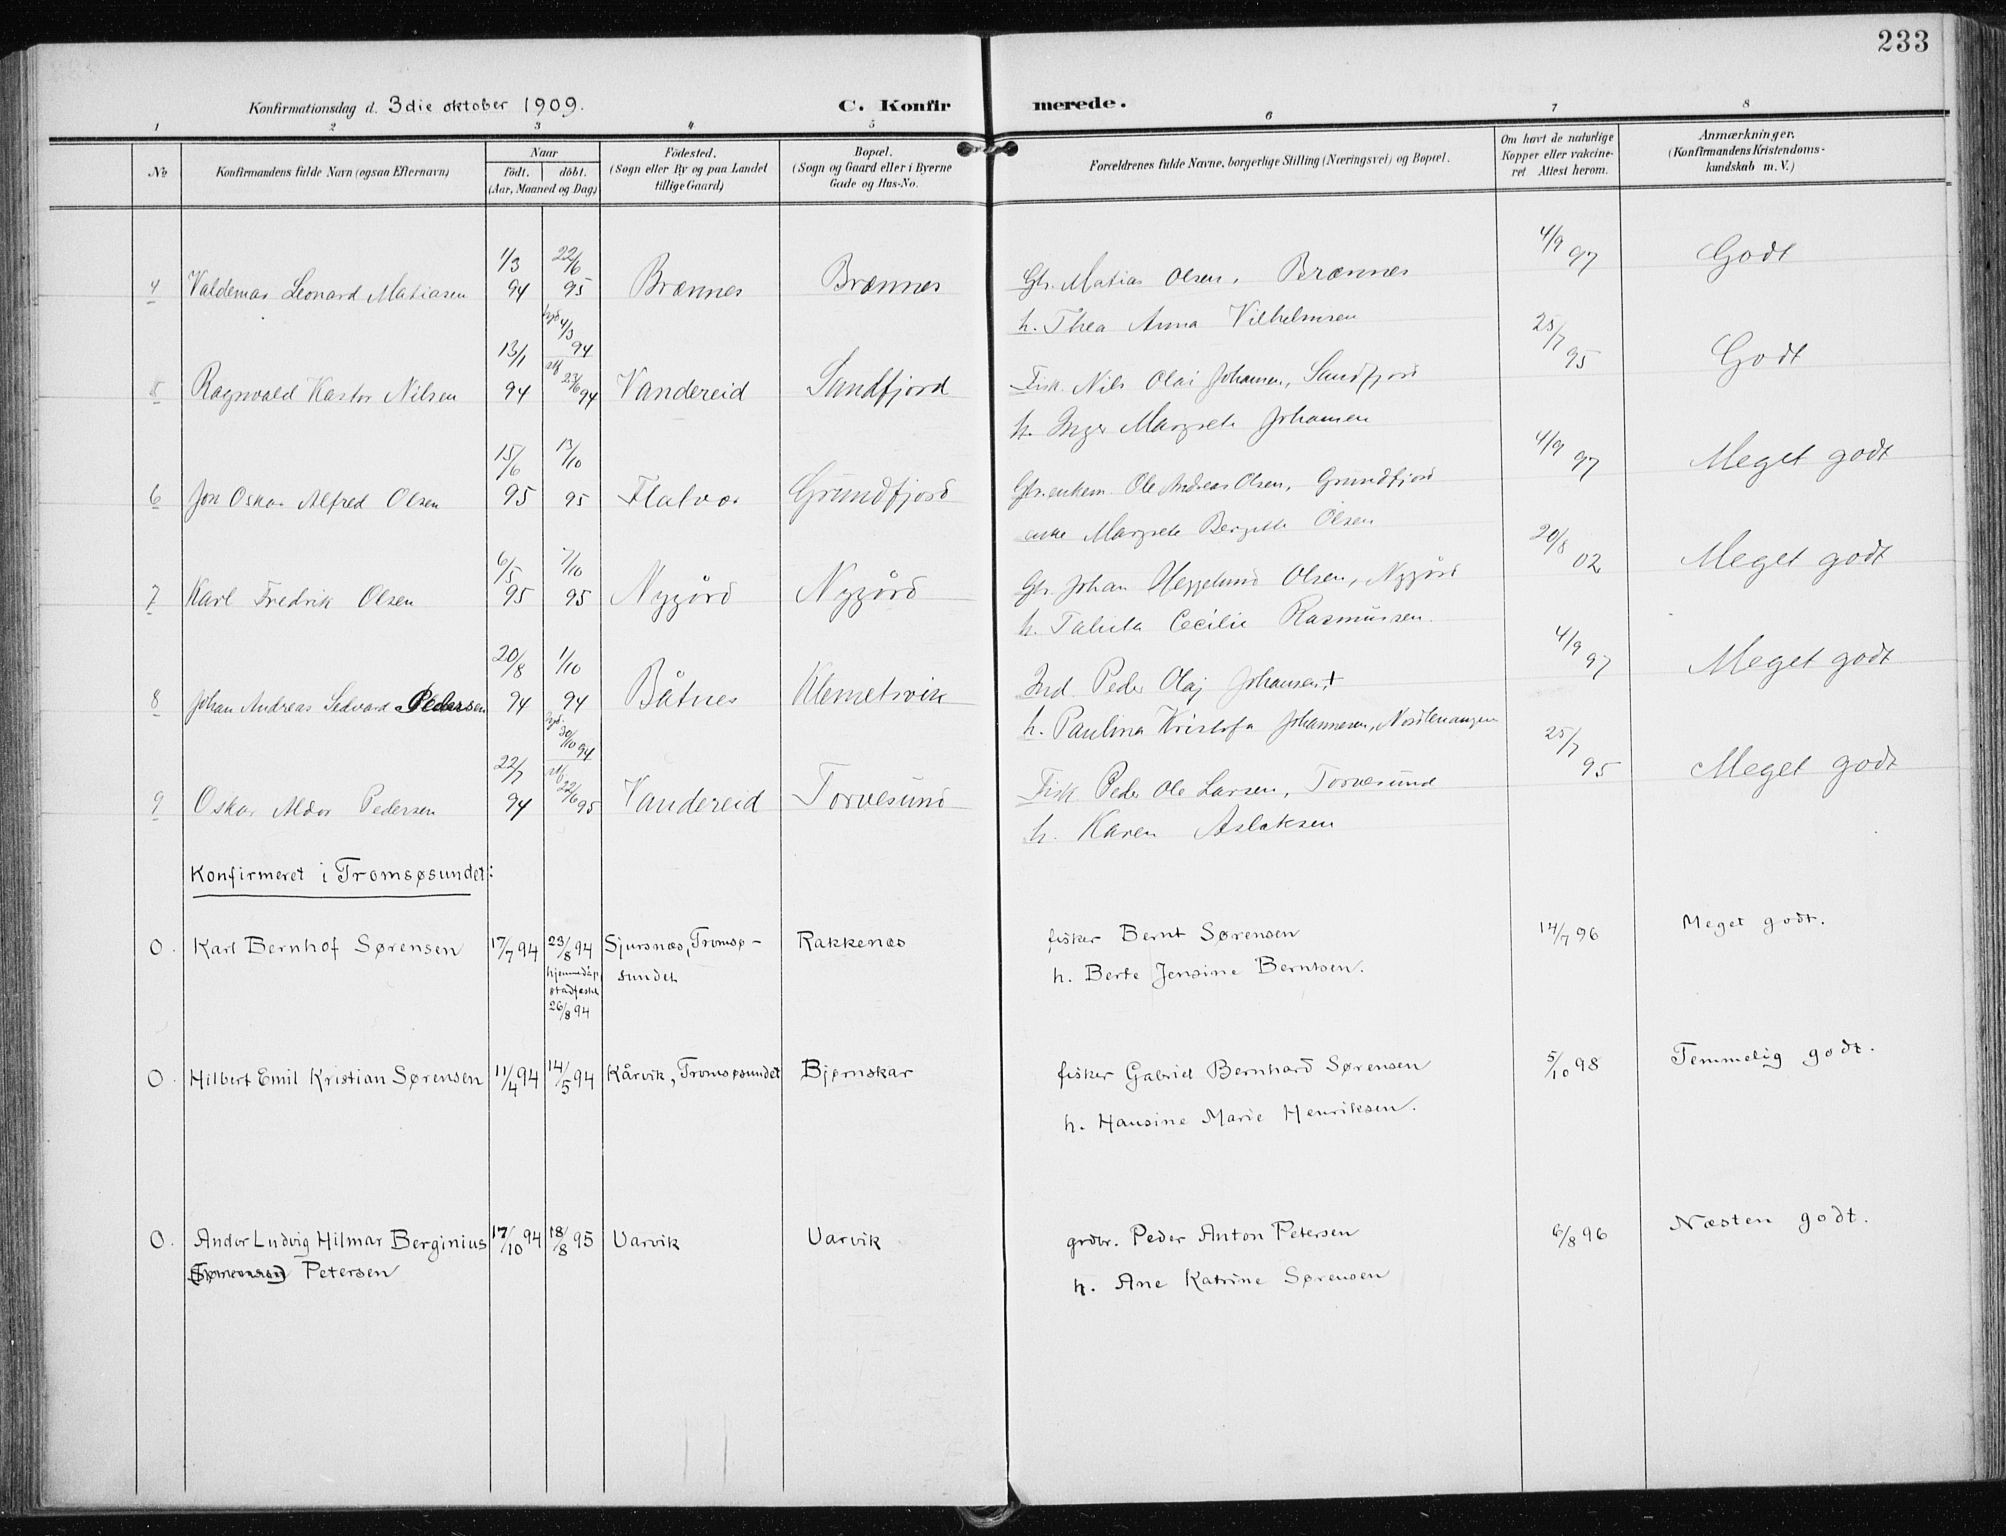 233
Konfirmationsdag d. 3die oktober 1909.
C. Konfirmerede.
1 2 3 4 5 6 7 8
No Konfirmandens fulde Navn (ogsaa Efternavn) Naar födt. döbt. (Aar, Maaned og Dag) Födested. (Sogn eller By og paa Landet tillige Gaard) Bopæl. (Sogn og Gaard eller i Byerne Gade og Hus-No. Forældrenes fulde Navne, borgerlige Stilling (Næringsvei) og Bopæl. Om havt de naturlige Kopper eller vakcineret Attest herom. Anmærkninger. (Konfirmandens Kristendomskundskab m. V.)
4 Valdemar Leonard Matiasen 1/3 94 22/6 95 Brænnes Brænnes Gbr. Matias Olsen, Brænnes 4/9 97 Godt
h. Thea Anna Vilhelmsen
5 Ragnvald Kastor Nilsen 13/1 94 4/3 94 23/6 94 Vandereid Sandfjord Fisk. Nils Olai Johansen, Sandfjord 25/7 95 Godt
h. Inger Margrete Johansen
6 Jon Oskar Alfred Olsen 15/6 95 13/10 95 Flatvær Grundfjord Gbr. enkem. Ole Andreas Olsen, Grundfjord 4/9 97 Meget godt
Margrete Bergitte Olsen
7 Karl Fredrik Olsen 6/5 95 7/10 95 Nygård Nygård Gbr. Johan Heggelund Olsen, Nygård 20/8 02 Meget godt
h. Tabita Cecilie Rasmussen.
8 Johan Andreas Sedvard Pedersen 20/8 94 1/10 94 Båtnes Klemetsvik Ind. Peder Olaj Johansen + 4/9 97 Meget godt
h. Paulina Kristofa Johannesen, Nordlenangen
9 Oskar Aldor Pedersen 22/7 94 30/10 94 22/6 95 Vandereid Torvesund Fisk. Peder Ole Larsen, Torvesund 25/7 95 Meget godt
h. Karen Aslaksen
Konfirmeret i Tromsøsundet:
0. Karl Bernhof Sørensen 17/7 94 23/8 94 hjemmedåp stadfæstet 26/8 94 Sjursnæs, Tromsøsundet Rakkenæs fisker Bernt Sørensen 14/7 96 Meget godt.
h. Berte Jensine Berntsen.
0. Hilbert Emil Kristian Sørensen 11/4 94 14/5 94 Kårvik, Tromsøsundet Bjørnskar fisker Gabriel Bernhard Sørensen 5/10 98 Temmelig godt.
h. Hansine Marie Henriksen.
0. Andor Ludvig Hilmar Berginius 17/10 94 18/8 95 Uarvik Uarvik grdbr. Peder Anton Petersen 6/8 96 Næsten godt.
Petersen h. Ane Katrine Sørensen